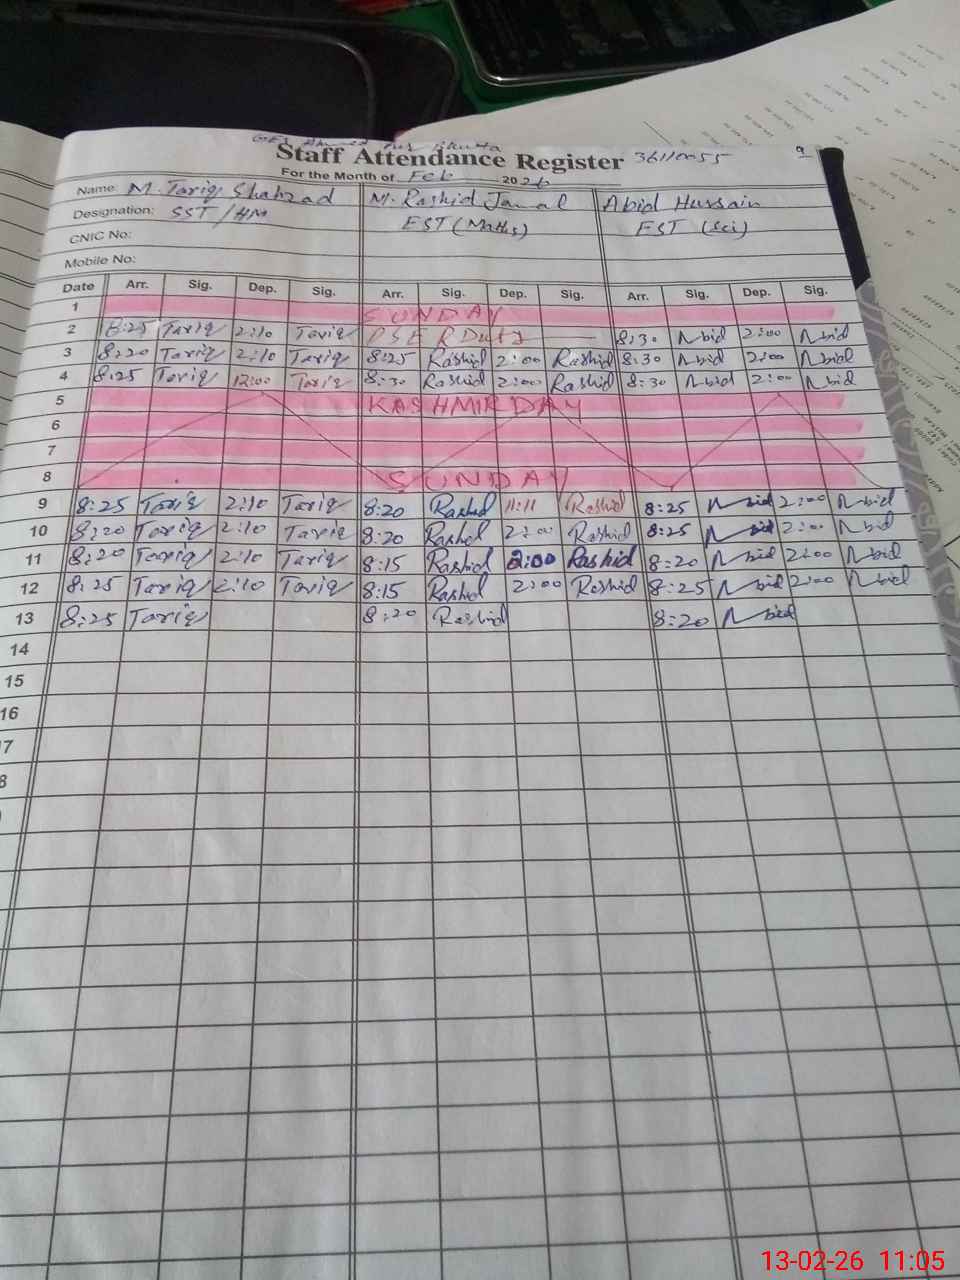 Staff Attendance Register 36110055 9
For the Month of Feb 2026
Name: M. Tariq Shahzad M. Rashid Jamal Abid Hussain
Designation: SST/HM EST (Maths) EST (Sci)
CNIC No:
Mobile No:
Date Arr. Sig. Dep. Sig. Arr. Sig. Dep. Sig. Arr. Sig. Dep. Sig.
1 SUNDAY
2 8:25 Tariq 2:10 Tariq PSER Duty 8:30 Abid 2:00 Abid
3 8:20 Tariq 2:10 Tariq 8:25 Rashid 2:00 Rashid 8:30 Abid 2:00 Abid
4 8:25 Tariq 12:00 Tariq 8:30 Rashid 2:00 Rashid 8:30 Abid 2:00 Abid
5 KASHMIR DAY
6
7
8 SUNDAY
9 8:25 Tariq 2:10 Tariq 8:20 Rashid 11:11 Rashid 8:25 Abid 2:00 Abid
10 8:20 Tariq 2:10 Tariq 8:20 Rashid 2:00 Rashid 8:25 Abid 2:00 Abid
11 8:20 Tariq 2:10 Tariq 8:15 Rashid 2:00 Rashid 8:20 Abid 2:00 Abid
12 8:25 Tariq 2:10 Tariq 8:15 Rashid 2:00 Rashid 8:25 Abid 2:00 Abid
13 8:25 Tariq 8:20 Rashid 8:20 Abid
14
15
16
7
8
13-02-26 11:05